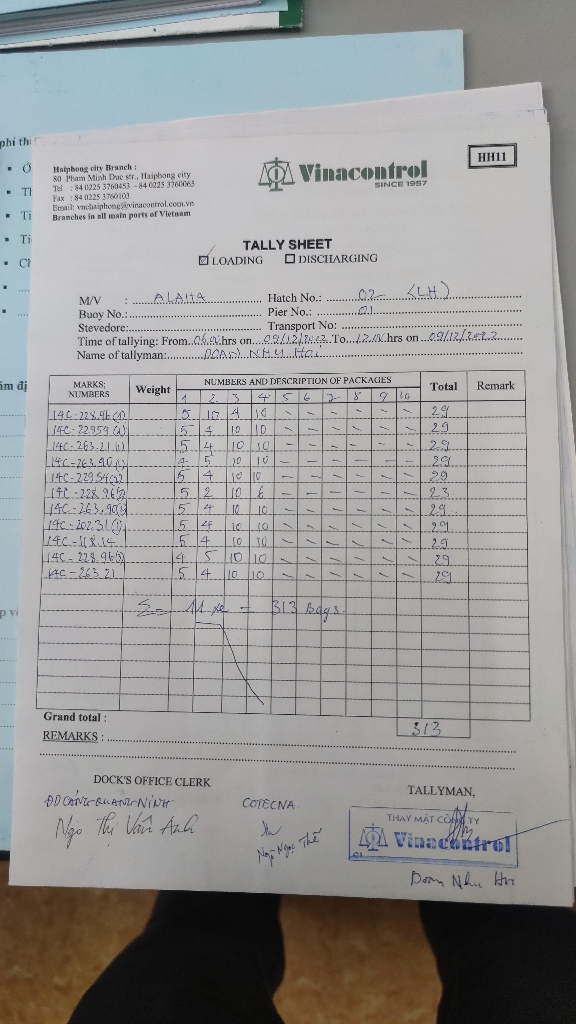 phí th
▪ Ở
▪ Th
▪ Ti
▪ Ti
▪ Ch
ám đị
Haiphong city Branch :
80 Pham Minh Duc str., Haiphong city
Tel : 84 0225 3760453 - 84 0225 3760065
Fax : 84 0225 3760103
Email: vnchaiphong@vinacontrol.com.vn
Branches in all main ports of Vietnam
Vinacontrol
SINCE 1957
HH11
TALLY SHEET
☑ LOADING ☐ DISCHARGING
M/V : ALAHA Hatch No.: 02 (LH)
Buoy No.: Pier No.: 01
Stevedore: Transport No:
Time of tallying: From 06.00 hrs on 09/12/2022 To 12.00 hrs on 09/12/2022
Name of tallyman: DOAN NHU HOI
MARKS; NUMBERS Weight NUMBERS AND DESCRIPTION OF PACKAGES Total Remark
1 2 3 4 5 6 7 8 9 10
14C-228.96 (1) 5 10 4 10 - - - - - - 29
14C-22954 (1) 5 4 10 10 - - - - - - 29
14C-263.21 (1) 5 4 10 10 - - - - - - 29
14C-263.90 (1) 4 5 10 10 - - - - - - 29
14C-22954 (2) 5 4 10 10 - - - - - - 29
14C-228.96 (2) 5 2 10 6 - - - - - - 23
14C-263.90 (2) 5 4 10 10 - - - - - - 29
14C-202.31 (1) 5 4 10 10 - - - - - - 29
14C-118.14 5 4 10 10 - - - - - - 29
14C-228.96 (3) 4 5 10 10 - - - - - - 29
14C-263.21 5 4 10 10 - - - - - - 29
Σ = 11 xe = 313 Bags
Grand total : 313
REMARKS :
DOCK'S OFFICE CLERK TALLYMAN,
ĐD CẢNG QUẢNG NINH COTECNA
Ngô Thị Vân Anh
Ngô Ngọc Thế
THAY MẶT CÔNG TY
Vinacontrol
Doan Nhu Hoi